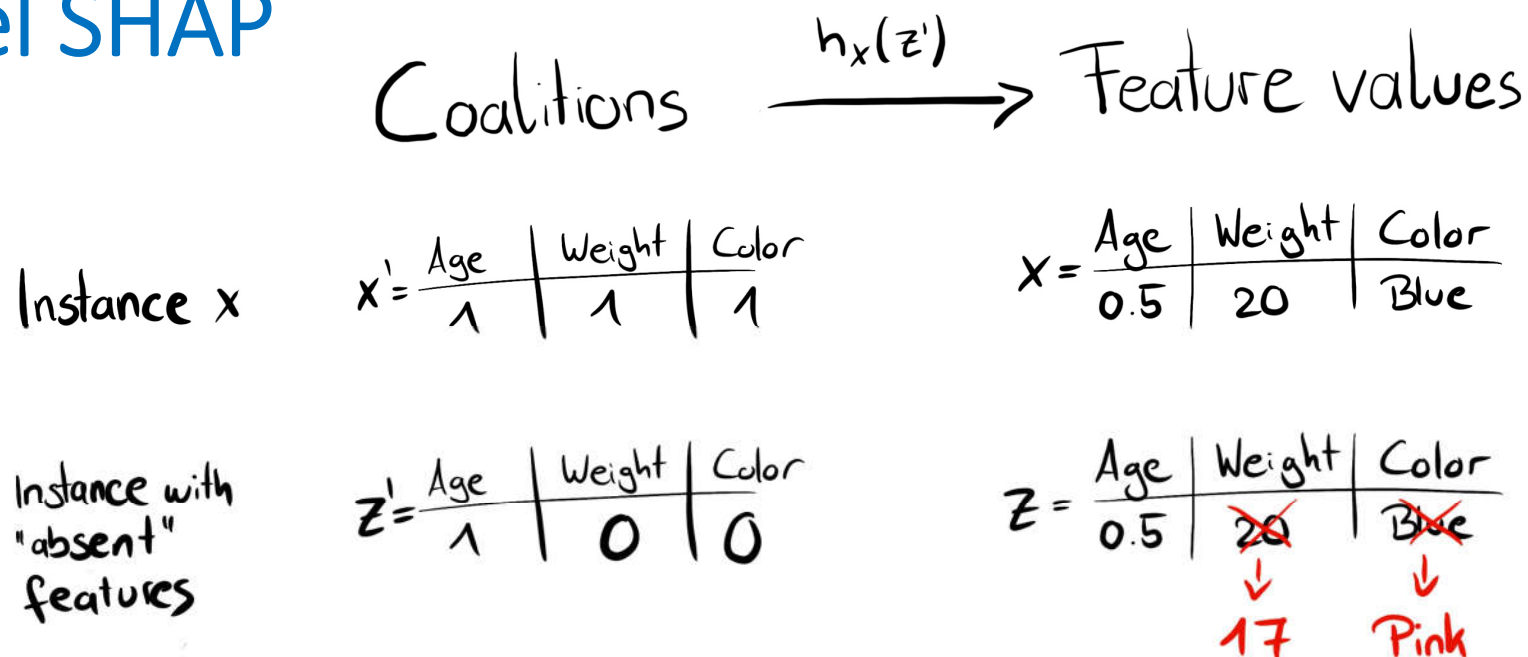 el SHAP
Coalitions hₓ(z') → Feature values
Instance x
x' =
Age | Weight | Color
1 | 1 | 1
x =
Age | Weight | Color
0.5 | 20 | Blue
Instance with
"absent"
features
z' =
Age | Weight | Color
1 | 0 | 0
z =
Age | Weight | Color
0.5 | 20 | Blue
↓ ↓
17 Pink